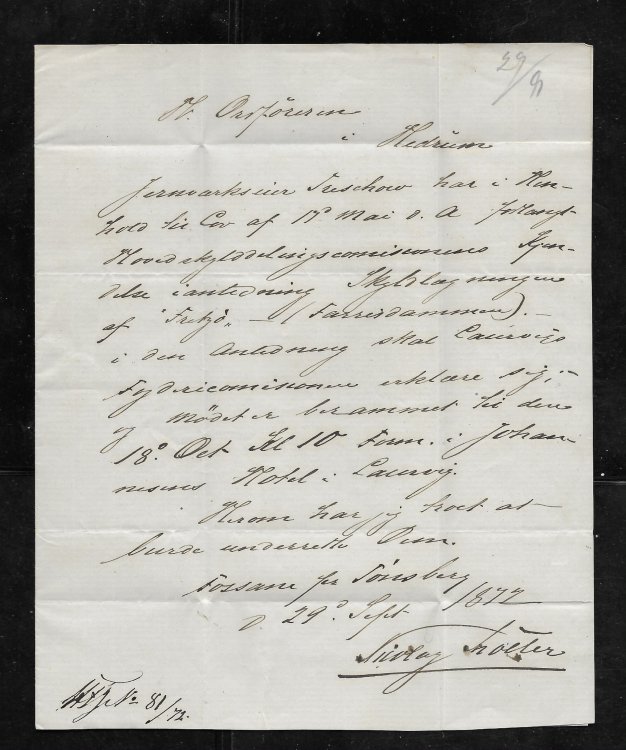 29/9
Hr. Ordföreren
i Hedrum
Jernværkseier Treschow har i Hen-
hold til Lov af 17d Mai d. A forlangt
Hovedskylddelingscomisionens Kjen-
delse i anledning Skyldlægningen
af "Fritzö" – (Farrisdammen). –
i den Anledning skal Laurvigs
Fogdericomisionen erklære sig, –
og Mödet er berammet til den
18d Oct Kl 10 Form. i Johan-
nesens Hotel i Laurvig.
Herom har jeg troet at
burde underrette Dem.
Fossane pr Tönsberg
d. 29d Sept 1872
Nicolay
No 81/72.